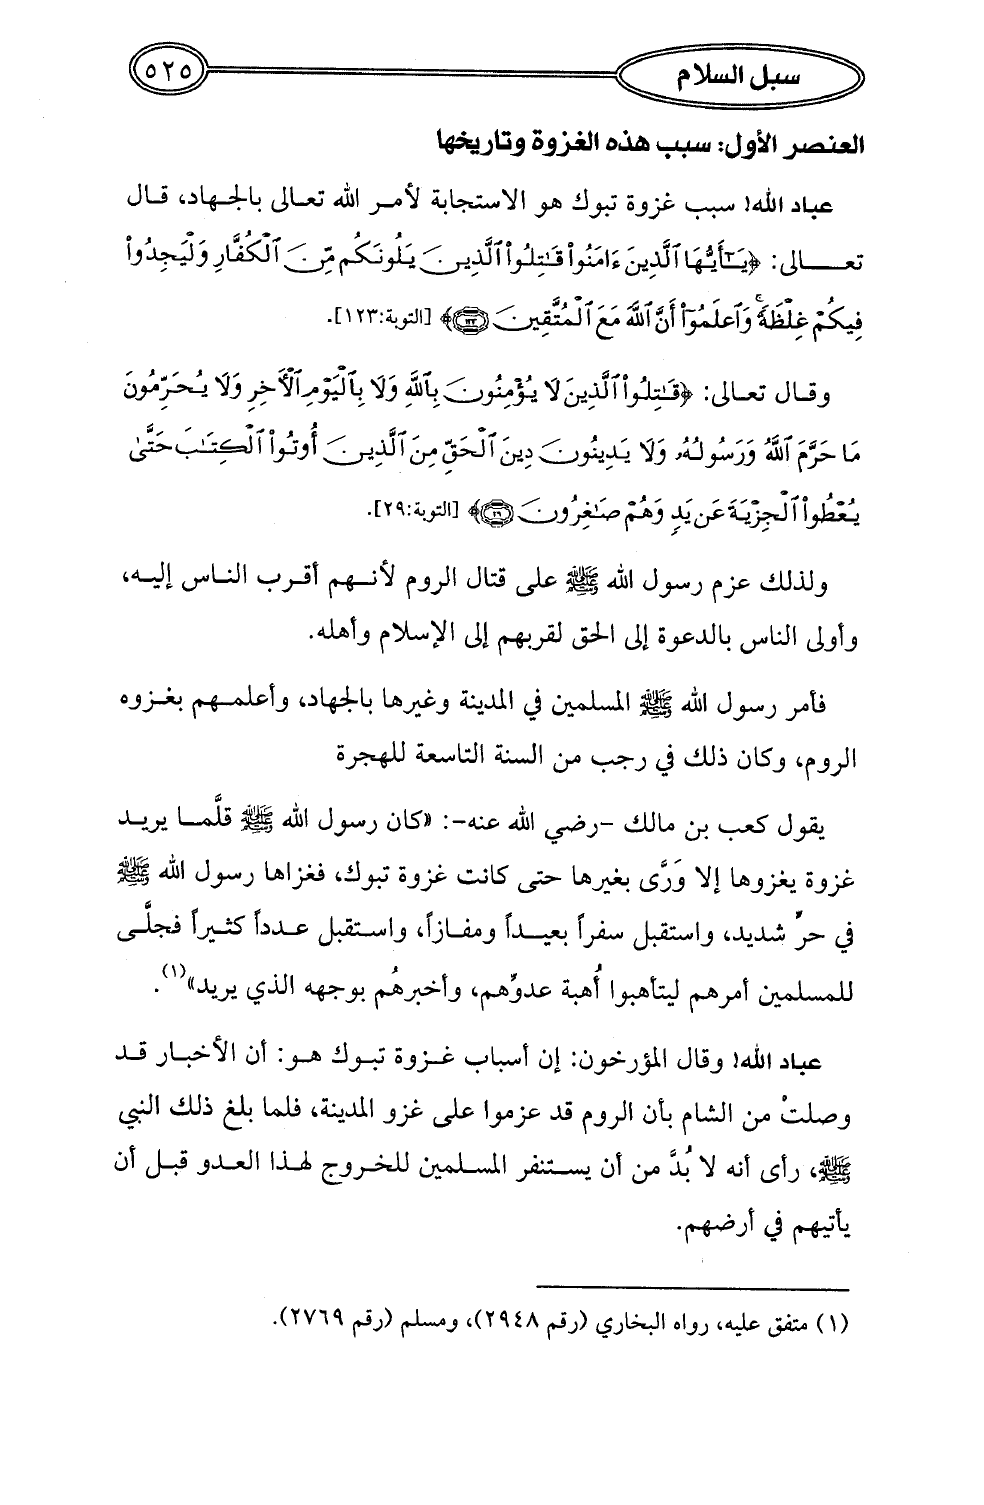 سبل السلام ٥٢٥
العنصر الأول: سبب هذه الغزوة وتاريخها
عباد الله! سبب غزوة تبوك هو الاستجابة لأمر الله تعالى بالجهاد، قال
تعالى: ﴿يَٰٓأَيُّهَا ٱلَّذِينَ ءَامَنُواْ قَٰتِلُواْ ٱلَّذِينَ يَلُونَكُم مِّنَ ٱلۡكُفَّارِ وَلۡيَجِدُواْ
فِيكُمۡ غِلۡظَةٗۚ وَٱعۡلَمُوٓاْ أَنَّ ٱللَّهَ مَعَ ٱلۡمُتَّقِينَ ١٢٣﴾ [التوبة:١٢٣].
وقال تعالى: ﴿قَٰتِلُواْ ٱلَّذِينَ لَا يُؤۡمِنُونَ بِٱللَّهِ وَلَا بِٱلۡيَوۡمِ ٱلۡأٓخِرِ وَلَا يُحَرِّمُونَ
مَا حَرَّمَ ٱللَّهُ وَرَسُولُهُۥ وَلَا يَدِينُونَ دِينَ ٱلۡحَقِّ مِنَ ٱلَّذِينَ أُوتُواْ ٱلۡكِتَٰبَ حَتَّىٰ
يُعۡطُواْ ٱلۡجِزۡيَةَ عَن يَدٖ وَهُمۡ صَٰغِرُونَ ٢٩﴾ [التوبة:٢٩].
ولذلك عزم رسول الله ﷺ على قتال الروم لأنهم أقرب الناس إليه،
وأولى الناس بالدعوة إلى الحق لقربهم إلى الإسلام وأهله.
فأمر رسول الله ﷺ المسلمين في المدينة وغيرها بالجهاد، وأعلمهم بغزوه
الروم، وكان ذلك في رجب من السنة التاسعة للهجرة
يقول كعب بن مالك -رضي الله عنه-: «كان رسول الله ﷺ قلَّما يريد
غزوة يغزوها إلا وَرَّى بغيرها حتى كانت غزوة تبوك، فغزاها رسول الله ﷺ
في حرٍّ شديد، واستقبل سفراً بعيداً ومفازاً، واستقبل عدداً كثيراً فجلَّى
للمسلمين أمرهم ليتأهبوا أُهبة عدوِّهم، وأخبرهُم بوجهه الذي يريد»(١).
عباد الله! وقال المؤرخون: إن أسباب غزوة تبوك هو: أن الأخبار قد
وصلتْ من الشام بأن الروم قد عزموا على غزو المدينة، فلما بلغ ذلك النبي
ﷺ، رأى أنه لا بُدَّ من أن يستنفر المسلمين للخروج لهذا العدو قبل أن
يأتيهم في أرضهم.
(١) متفق عليه، رواه البخاري (رقم ٢٩٤٨)، ومسلم (رقم ٢٧٦٩).